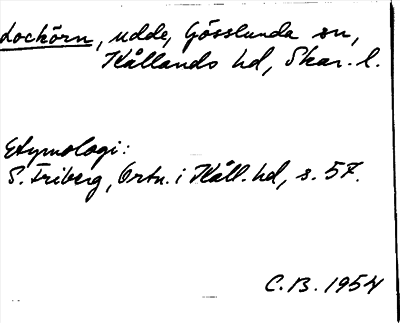 Lockörn, udde, Gösslunda sn,
Kållands hd, Skar. l.
Etymologi:
S. Friberg, Ortn. i Kåll. hd, s. 57.
C.B. 1954